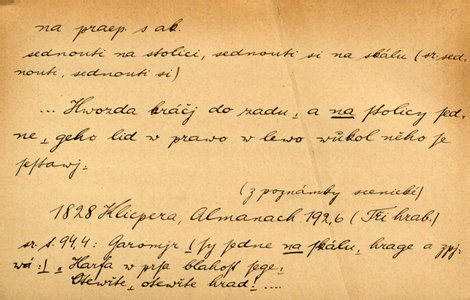 na praep. s ak.
sednouti na stolici, sednouti si na skálu (sr. sed-
nouti, sednouti si)
... Hwozda kráčj do zadu, a na stolicy sed-
ne, geho lid w prawo w lewo wůkol něho se
sestawj.
(z poznámky scenické)
1828 Klicpera, Almanach 192,6 (Tři hrab.)
sr. s. 94,4: Jaromjr (sy sedne na skálu, hrage a zpj-
wá:) „Harfa w prsa blahost sege,
Otewřte, otewřte hrad: ....